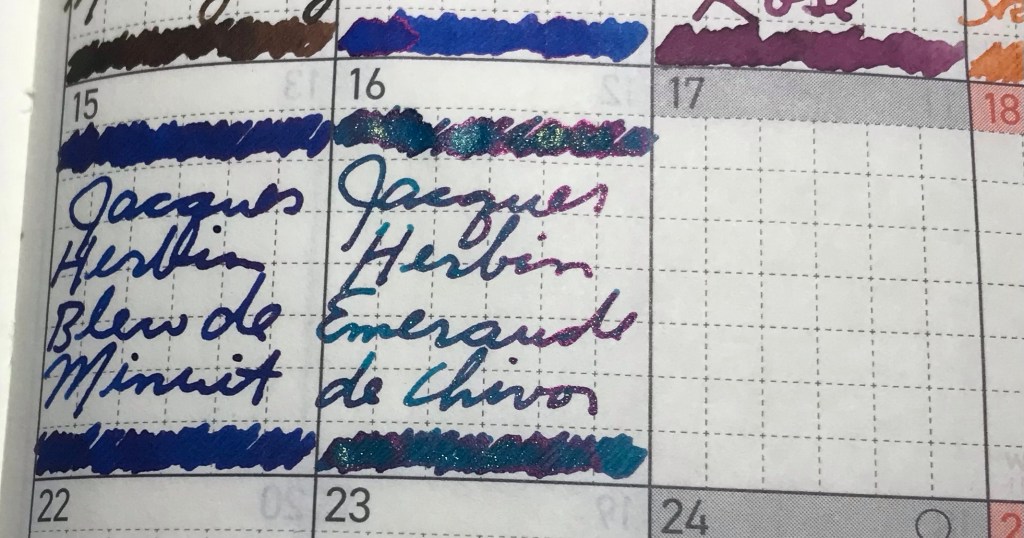 Rose
15
16
17
18
Jacques
Herbin
Bleu de
Minuit
Jacques
Herbin
Emeraude
de Chivor
22
23
24